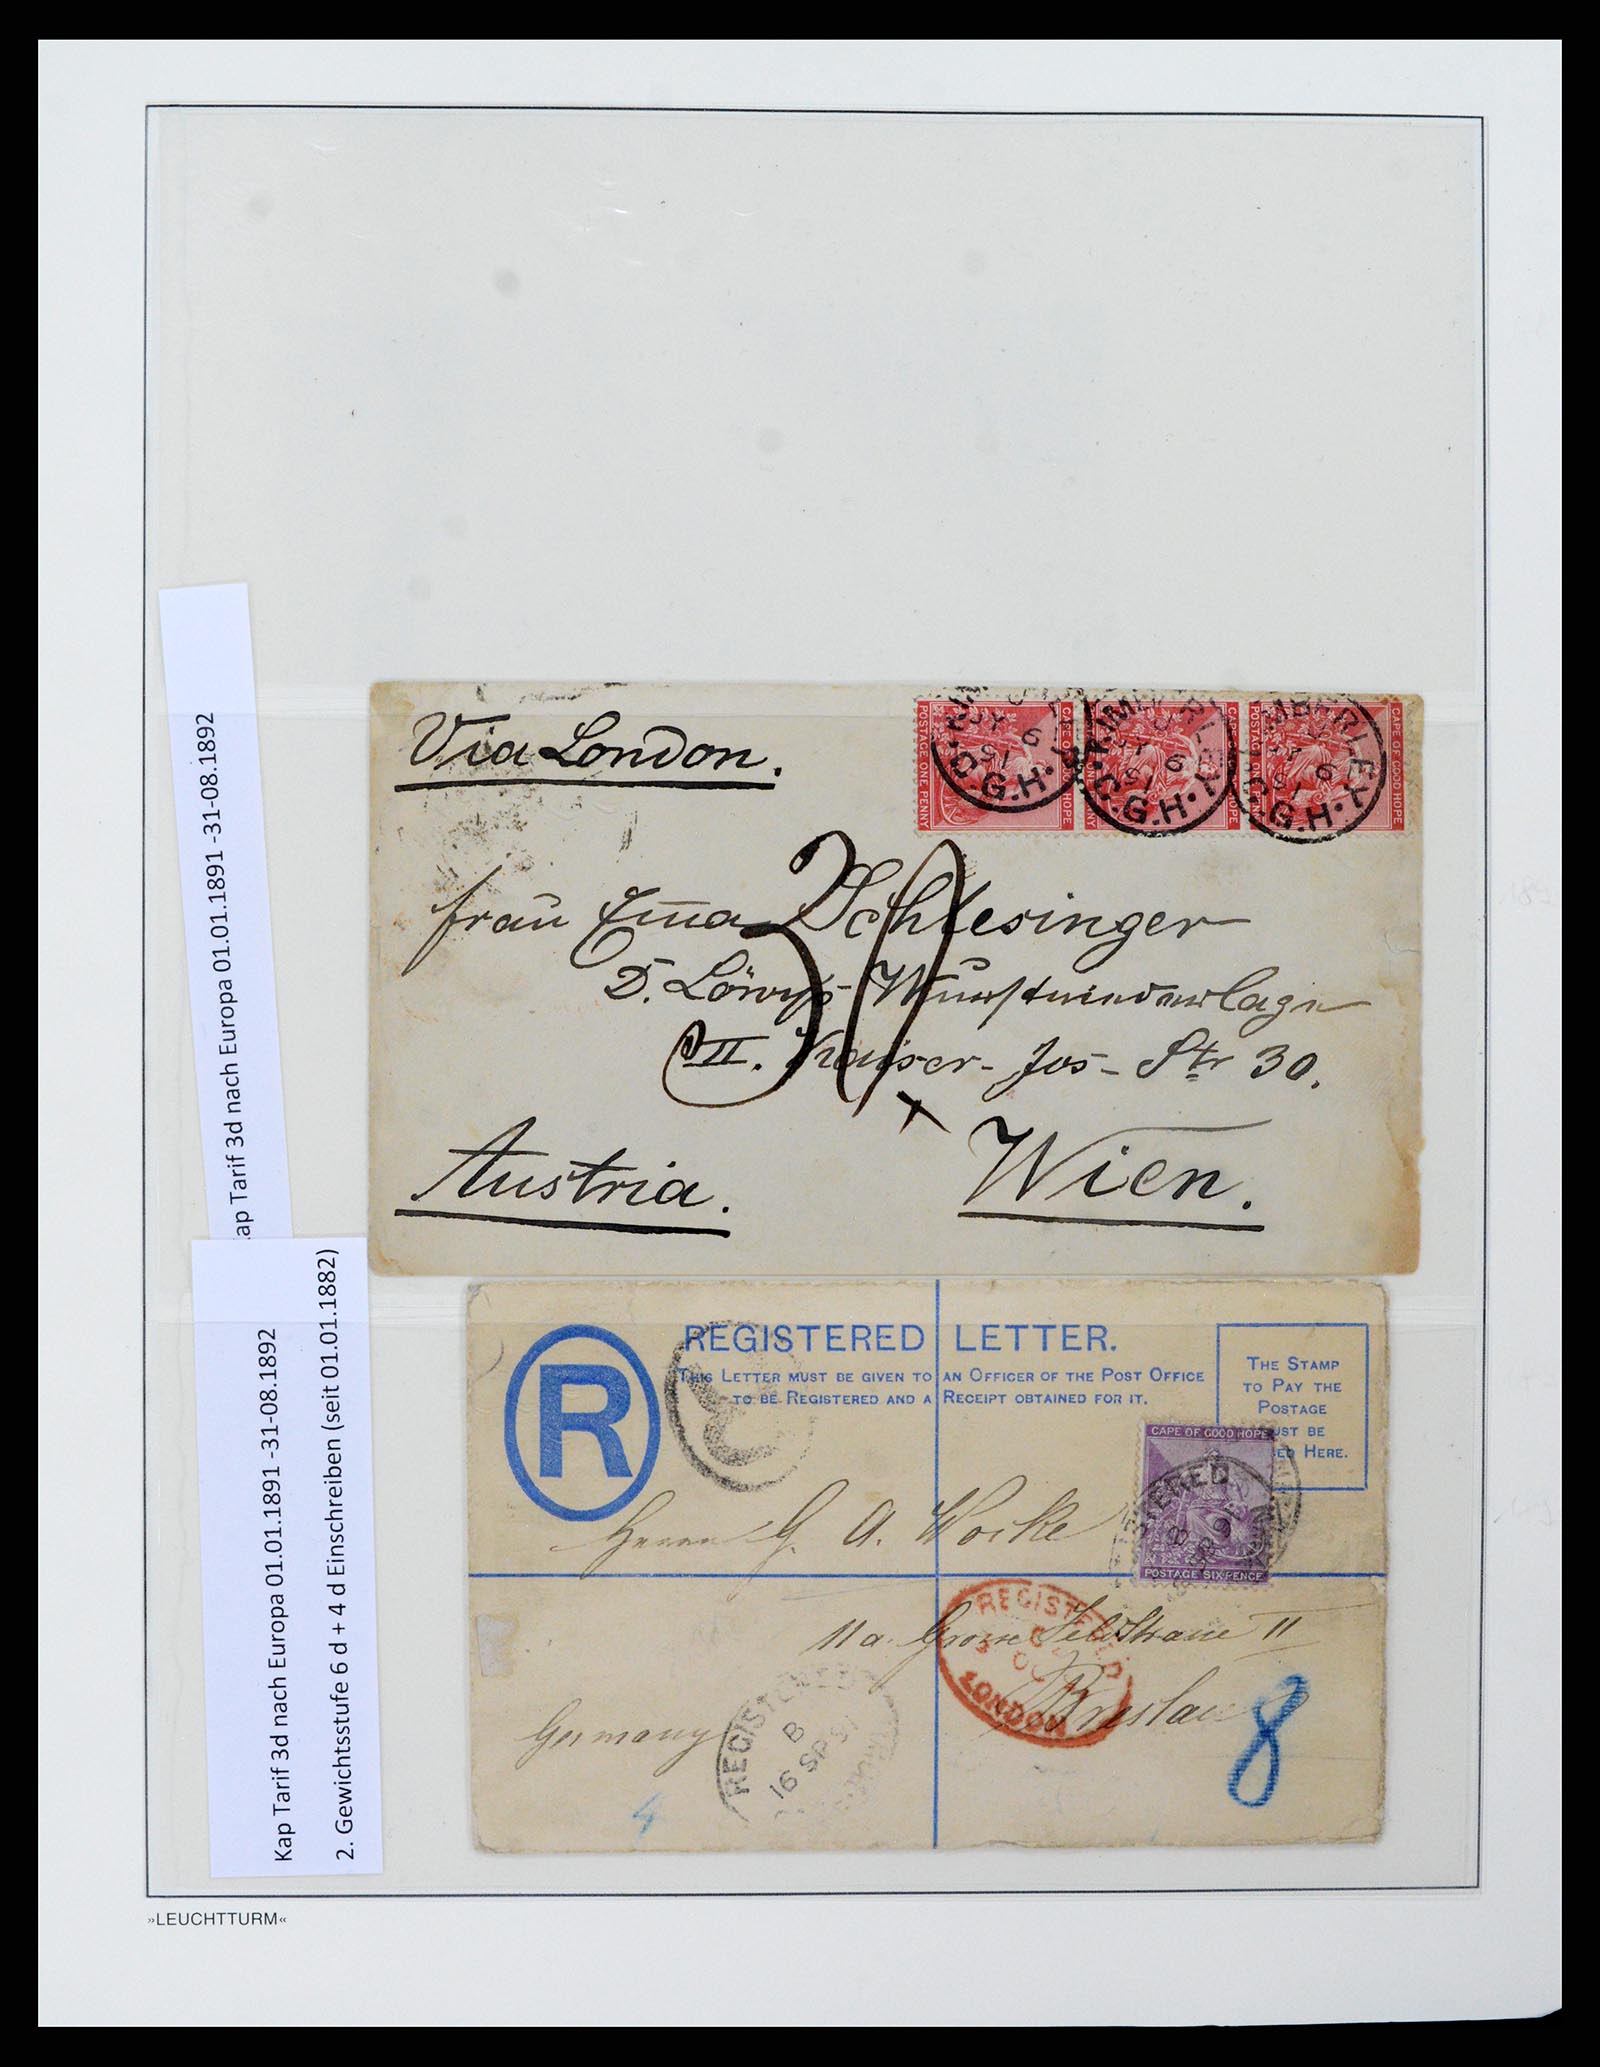 Kap Tarif 3d nach Europa 01.01.1891 -31-08.1892
Via London.
CAPE OF GOOD HOPE
POSTAGE ONE PENNY
CAPE OF GOOD HOPE
POSTAGE ONE PENNY
CAPE OF GOOD HOPE
POSTAGE ONE PENNY
KIMBERLEY
C.G.H.
Frau Emma Schlesinger
D. Löwys
II. Kaiser-Jos-Str 30.
Austria.
Wien.
Kap Tarif 3d nach Europa 01.01.1891 -31-08.1892
2. Gewichtsstufe 6 d + 4 d Einschreiben (seit 01.01.1882)
R
REGISTERED LETTER.
THIS LETTER MUST BE GIVEN TO AN OFFICER OF THE POST OFFICE
TO BE REGISTERED AND A RECEIPT OBTAINED FOR IT.
THE STAMP
TO PAY THE
POSTAGE
MUST BE
HERE.
CAPE OF GOOD HOPE
POSTAGE SIXPENCE
Herrn G. A. Wocke
11a. Grosse Feldstrasse II
Breslau
Germany
REGISTERED
LONDON
REGISTERED
B
16 SP 91
4
8
»LEUCHTTURM«